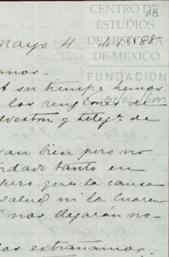 68
CENTRO DE
ESTUDIOS
DE HISTORIA
DE MEXICO
FUNDACIÓN
Mayo 4 de 1888
anos.
su tiempo hemos
los renglones de
veston y Telegs. de
an bien pero no
dado tanto en
pero que la causa
salud ni la cuaren
nos dejaran no-
los extrañamos